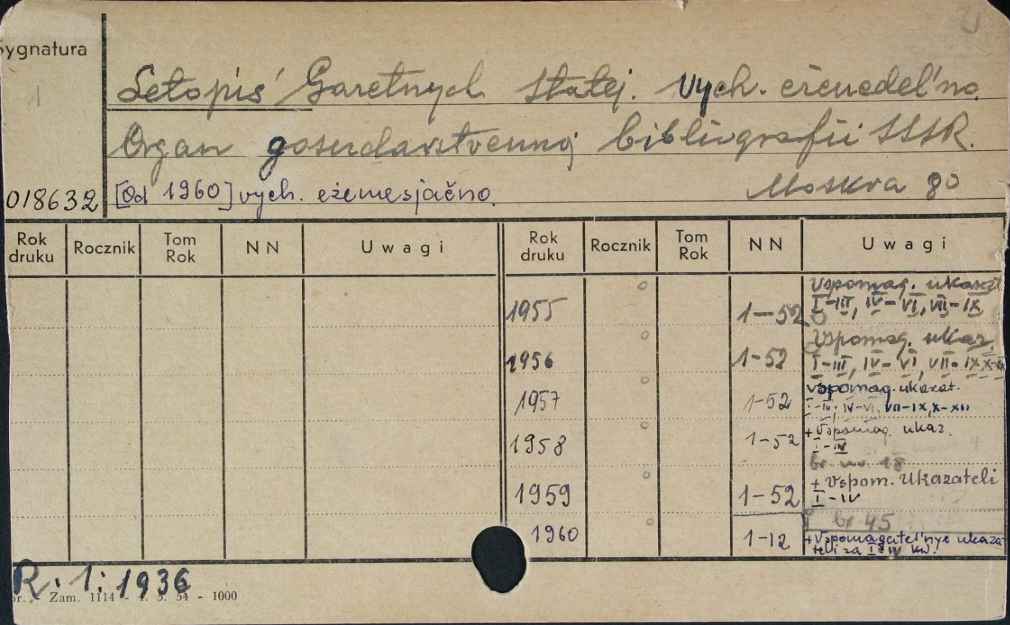 Sygnatura
Letopis' Gazetnych Statej. Vych. eženedel'no.
Organ gosudarstvennoj bibliografii SSSR.
018632 [Od 1960] vych. ežemesjačno. Moskva 80
Rok druku Rocznik Tom Rok NN Uwagi Rok druku Rocznik Tom Rok NN Uwagi
1955 1-52 Vspomag. ukazat.
I-III, IV-VI, VII-IX
1956 1-52 Vspomag. ukaz.
I-III, IV-VI, VII-IX, X-XII
1957 1-52 Vspomag. ukazat.
IV-VI, VII-IX, X-XII
1958 1-52 + Vspomag. ukaz.
I-IV
br. nr. 18
1959 1-52 + Vspom. Ukazateli
I-IV
br 45
1960 1-12 + Vspomagatel'nye ukaza
teli za I i IV kw.
R. 1: 1936
Zam. 1114 - 54 - 1000